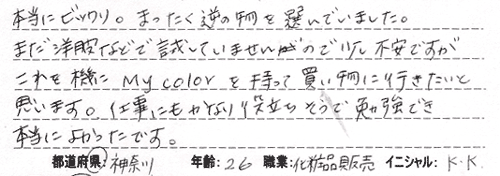 本当にビックリ。まったく逆の物を選んでいました。
まだ洋服などで試していませんがので少し不安ですが
これを機に My color を持って買い物に行きたいと
思います。仕事にもかなり役立ちそうで勉強でき
本当によかったです。
都道府県:神奈川 年齢:26 職業:化粧品販売 イニシャル:K.K.